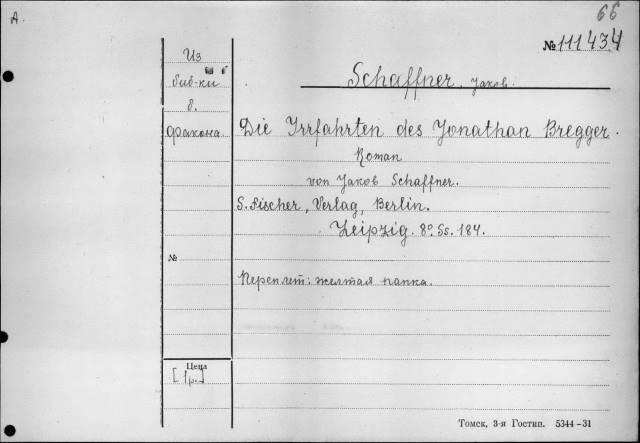 А.
66
№ 111434
Из
биб-ки
б.
фракона.
Schaffner, Jакob.
Die Irrfahrten des Jonathan Bregger.
Roman
von Jakob Schaffner.
S. Fischer, Verlag, Berlin.
Leipzig. 8º Ss. 184.
№
Переплет: желтая папка.
Цена
[1р.]
Томск, 3-я Гостип. 5344-31